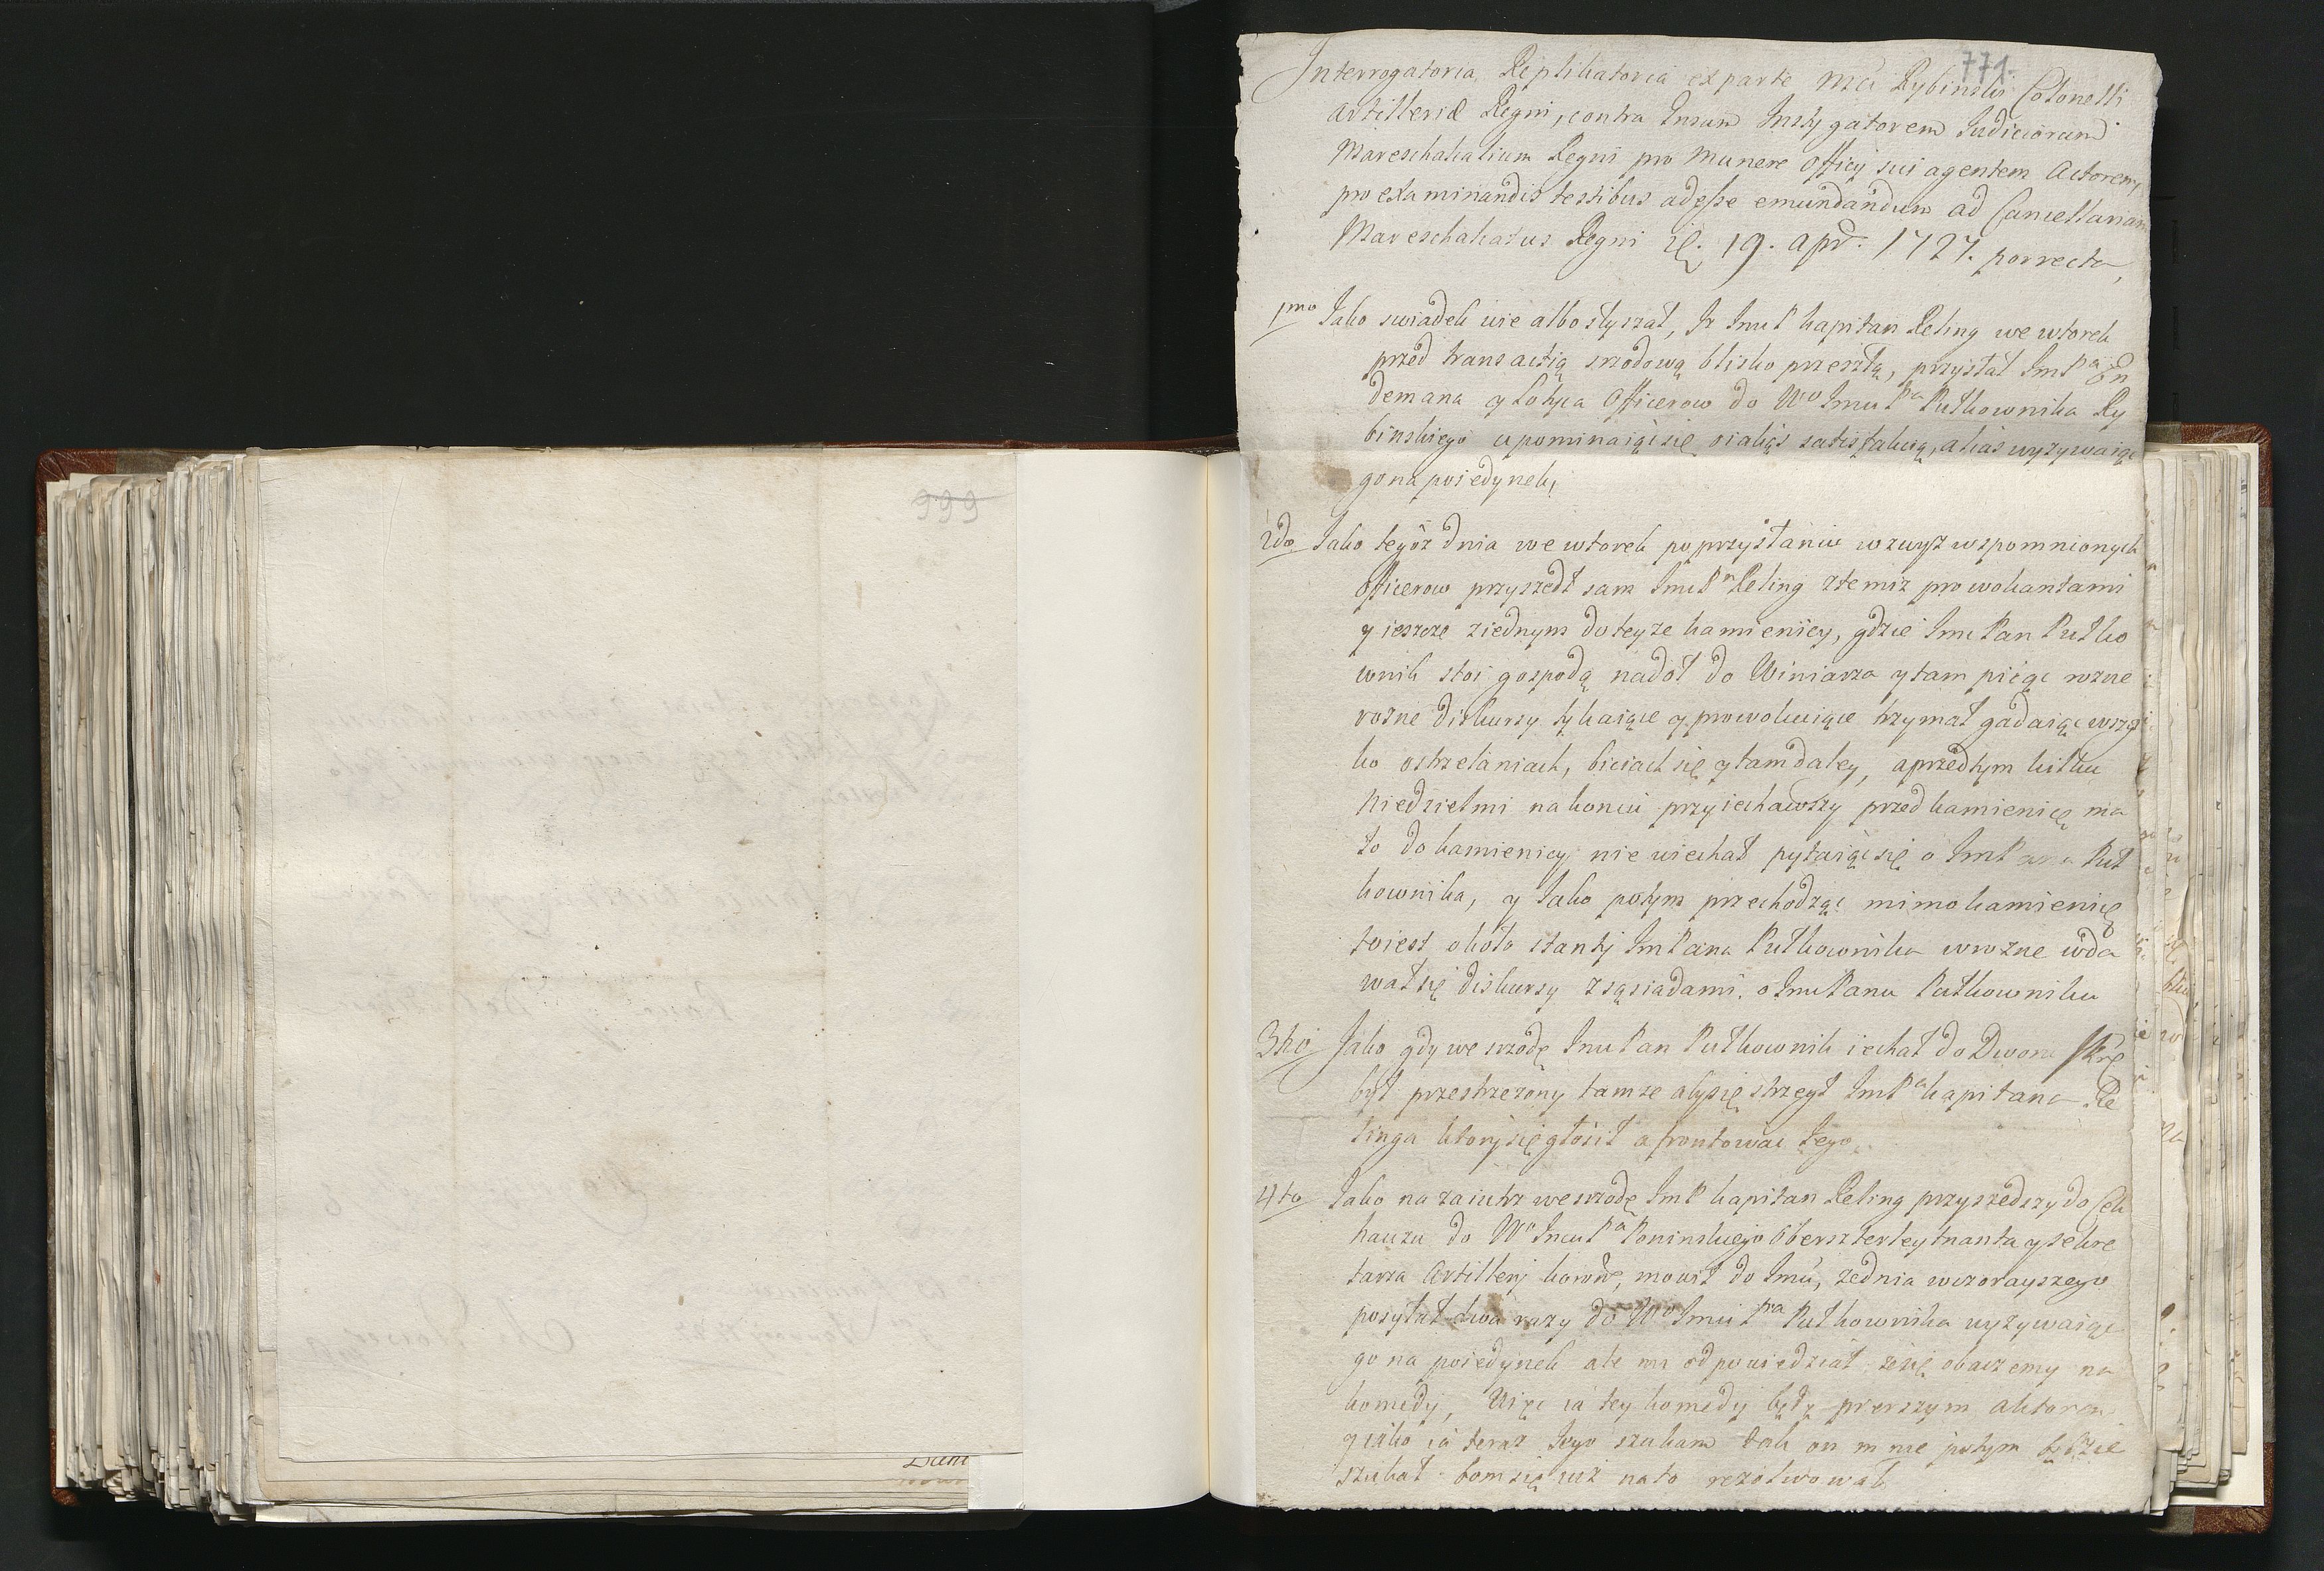 999
771.
Interrogatoria Replikatoria ex parte Mci Rybinski Colonelli
Artilleriæ Regni, contra Insum Instygatorem Judiciorum
Mareschalcalium Regni pro munere Officij sui agentem Actorem,
pro examinandis testibus adesse emundandum ad Cancellariam
Mareschalcatus Regni 19. apr. 1727. porrecta,
1mo Jako swiadek wie albo słyszał, Iz Imc P kapitan Reling we wtorek
przed transactią srzodową blisko przeszłą, przysłał ImPa On
demana y Officerow do Wo Imci Pa Pułkownika Ry
binskiego upominaiąc się oiakąś satisfakcią, alias wyzywaiąc
go na poiedynek,
2do Jako tegoz dnia we wtorek poprzysłaniu wzwysz wspomnionych
Officerow przyszedł sam Imc Pn Reling ztemiz prowokantami
y ieszcze ziednym doteyze kamienicy, gdzie Imc Pan Pułko
wnik stoi gospodą nadoł do Winiarza ytam piiąc rozne
rozne diskursy tykaiące y prowokuiące trzymał gadaiąc wszy
ko ostrzelaniach, biciach się ytamdaley, aprzedtym kilku
Niedzielmi na koniu przyiechawszy przed kamienicę ma
ło do kamienicy nie wiechał pytaiąc się o ImPana Puł
kownika, y Jako potym przechodząc mimo kamienicę
toiest około stantj ImPana Pułkownika wrozne wda
wał się diskursy z sąsiadami. o Imc Panu Pułkowniku
3tio Jako gdy we srzodę Imc Pan Pułkownik iechał do Dworu
był przestrzezony tamze aby się strzegł ImPa kapitana Re
linga ktory się głosił afrontować tego
4to Jako na zaiutrz we srzodę ImP kapitan Reling przyszedszy do Cek
hauzu do Wo Imci Pa Poninskiego Oberszterleytnanta y sekre
tarza Artillerij koronn, mowił do Imci, ze dnia wczorayszego
posyłał dwa razy do Wo Imci Pna Pułkownika wyzywaiąc
go na poiedynek ale mi odpowiedział, ze się obaczemy na
komedy, Więc ia tey komedij będę pierszym aktorem
y iako ia teraz Jego szukam tak on mnie potym będzie
szukał bom się iuz na to rezolwował